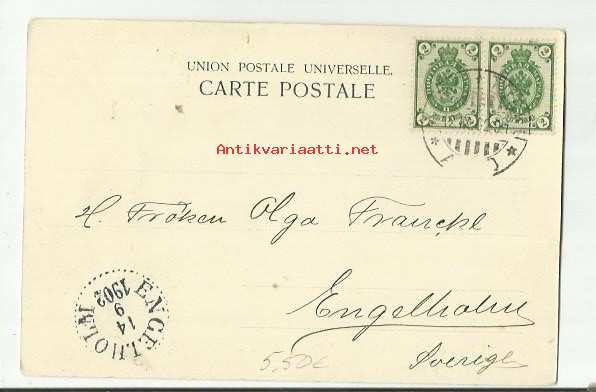 UNION POSTALE UNIVERSELLE.
CARTE POSTALE
2 2
2 2
Antikvariaatti.net
H. Fröken Olga Franckel
Engelholm
Sverige
ENGELHOLM
14
9
1902
5,50€